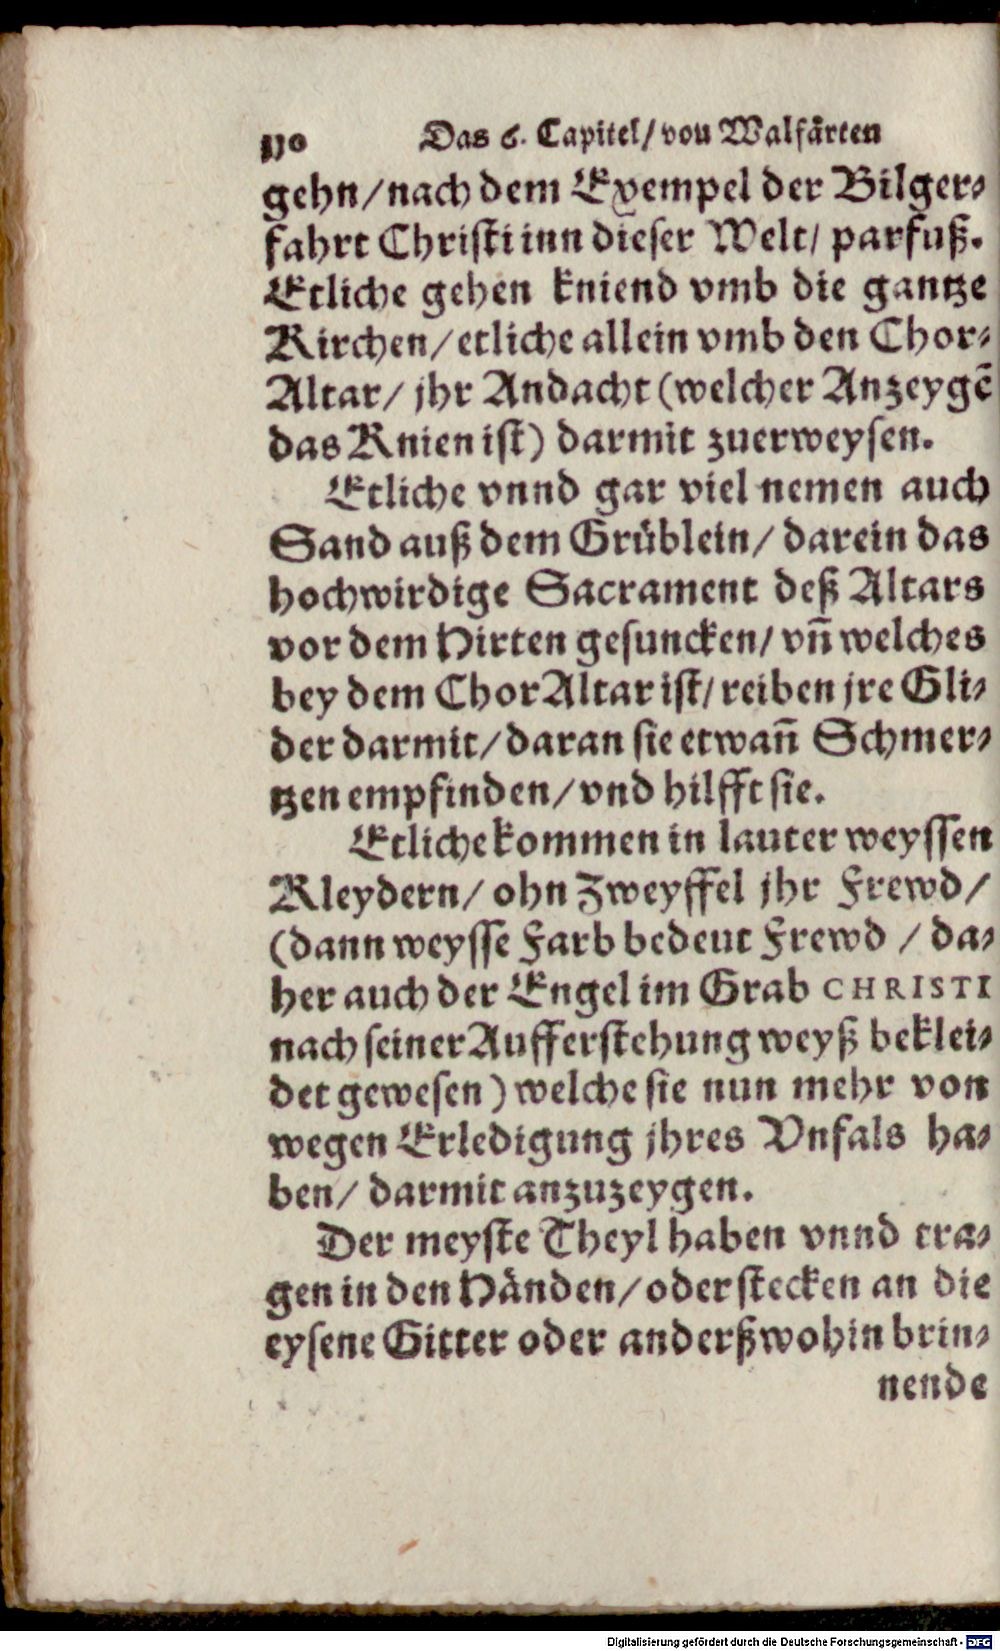 110 Das 6. Capitel/ von Walfårten
gehn/ nach dem Exempel der Bilger⸗
fahrt Christi inn dieser Welt/ parfuß.
Etliche gehen kniend vmb die gantze
Kirchen/ etliche allein vmb den Chor⸗
Altar/ jhr Andacht (welcher Anzeygẽ
das Knien ist) darmit zuerweysen.
Etliche vnnd gar viel nemen auch
Sand auß dem Grüblein/ darein das
hochwirdige Sacrament deß Altars
vor dem Hirten gesuncken/ vñ welches
bey dem Chor Altar ist/ reiben jre Gli⸗
der darmit/ daran sie etwañ Schmer⸗
tzen empfinden/ vnd hilfft sie.
Etliche kommen in lauter weyssen
Kleydern/ ohn Zweyffel jhr Frewd/
(dann weysse Farb bedeut Frewd / da⸗
her auch der Engel im Grab CHRISTI
nach seiner Aufferstehung weyß beklei⸗
det gewesen) welche sie nun mehr von
wegen Erledigung jhres Vnfals ha⸗
ben/ darmit anzuzeygen.
Der meyste Theyl haben vnnd tra⸗
gen in den Hånden/ oder stecken an die
eysene Gitter oder anderßwohin brin⸗
nende
Digitalisierung gefördert durch die Deutsche Forschungsgemeinschaft - DFG